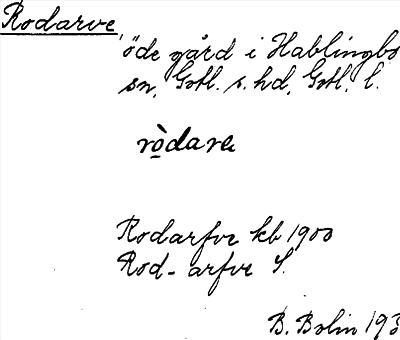 Rodarve,
öde gård i Hablingbo
sn, Gotl. s. hd, Gotl. l.
rò̤darve
Rodarfve kb 1900
Rod-arfve S.
B. Bolin 193